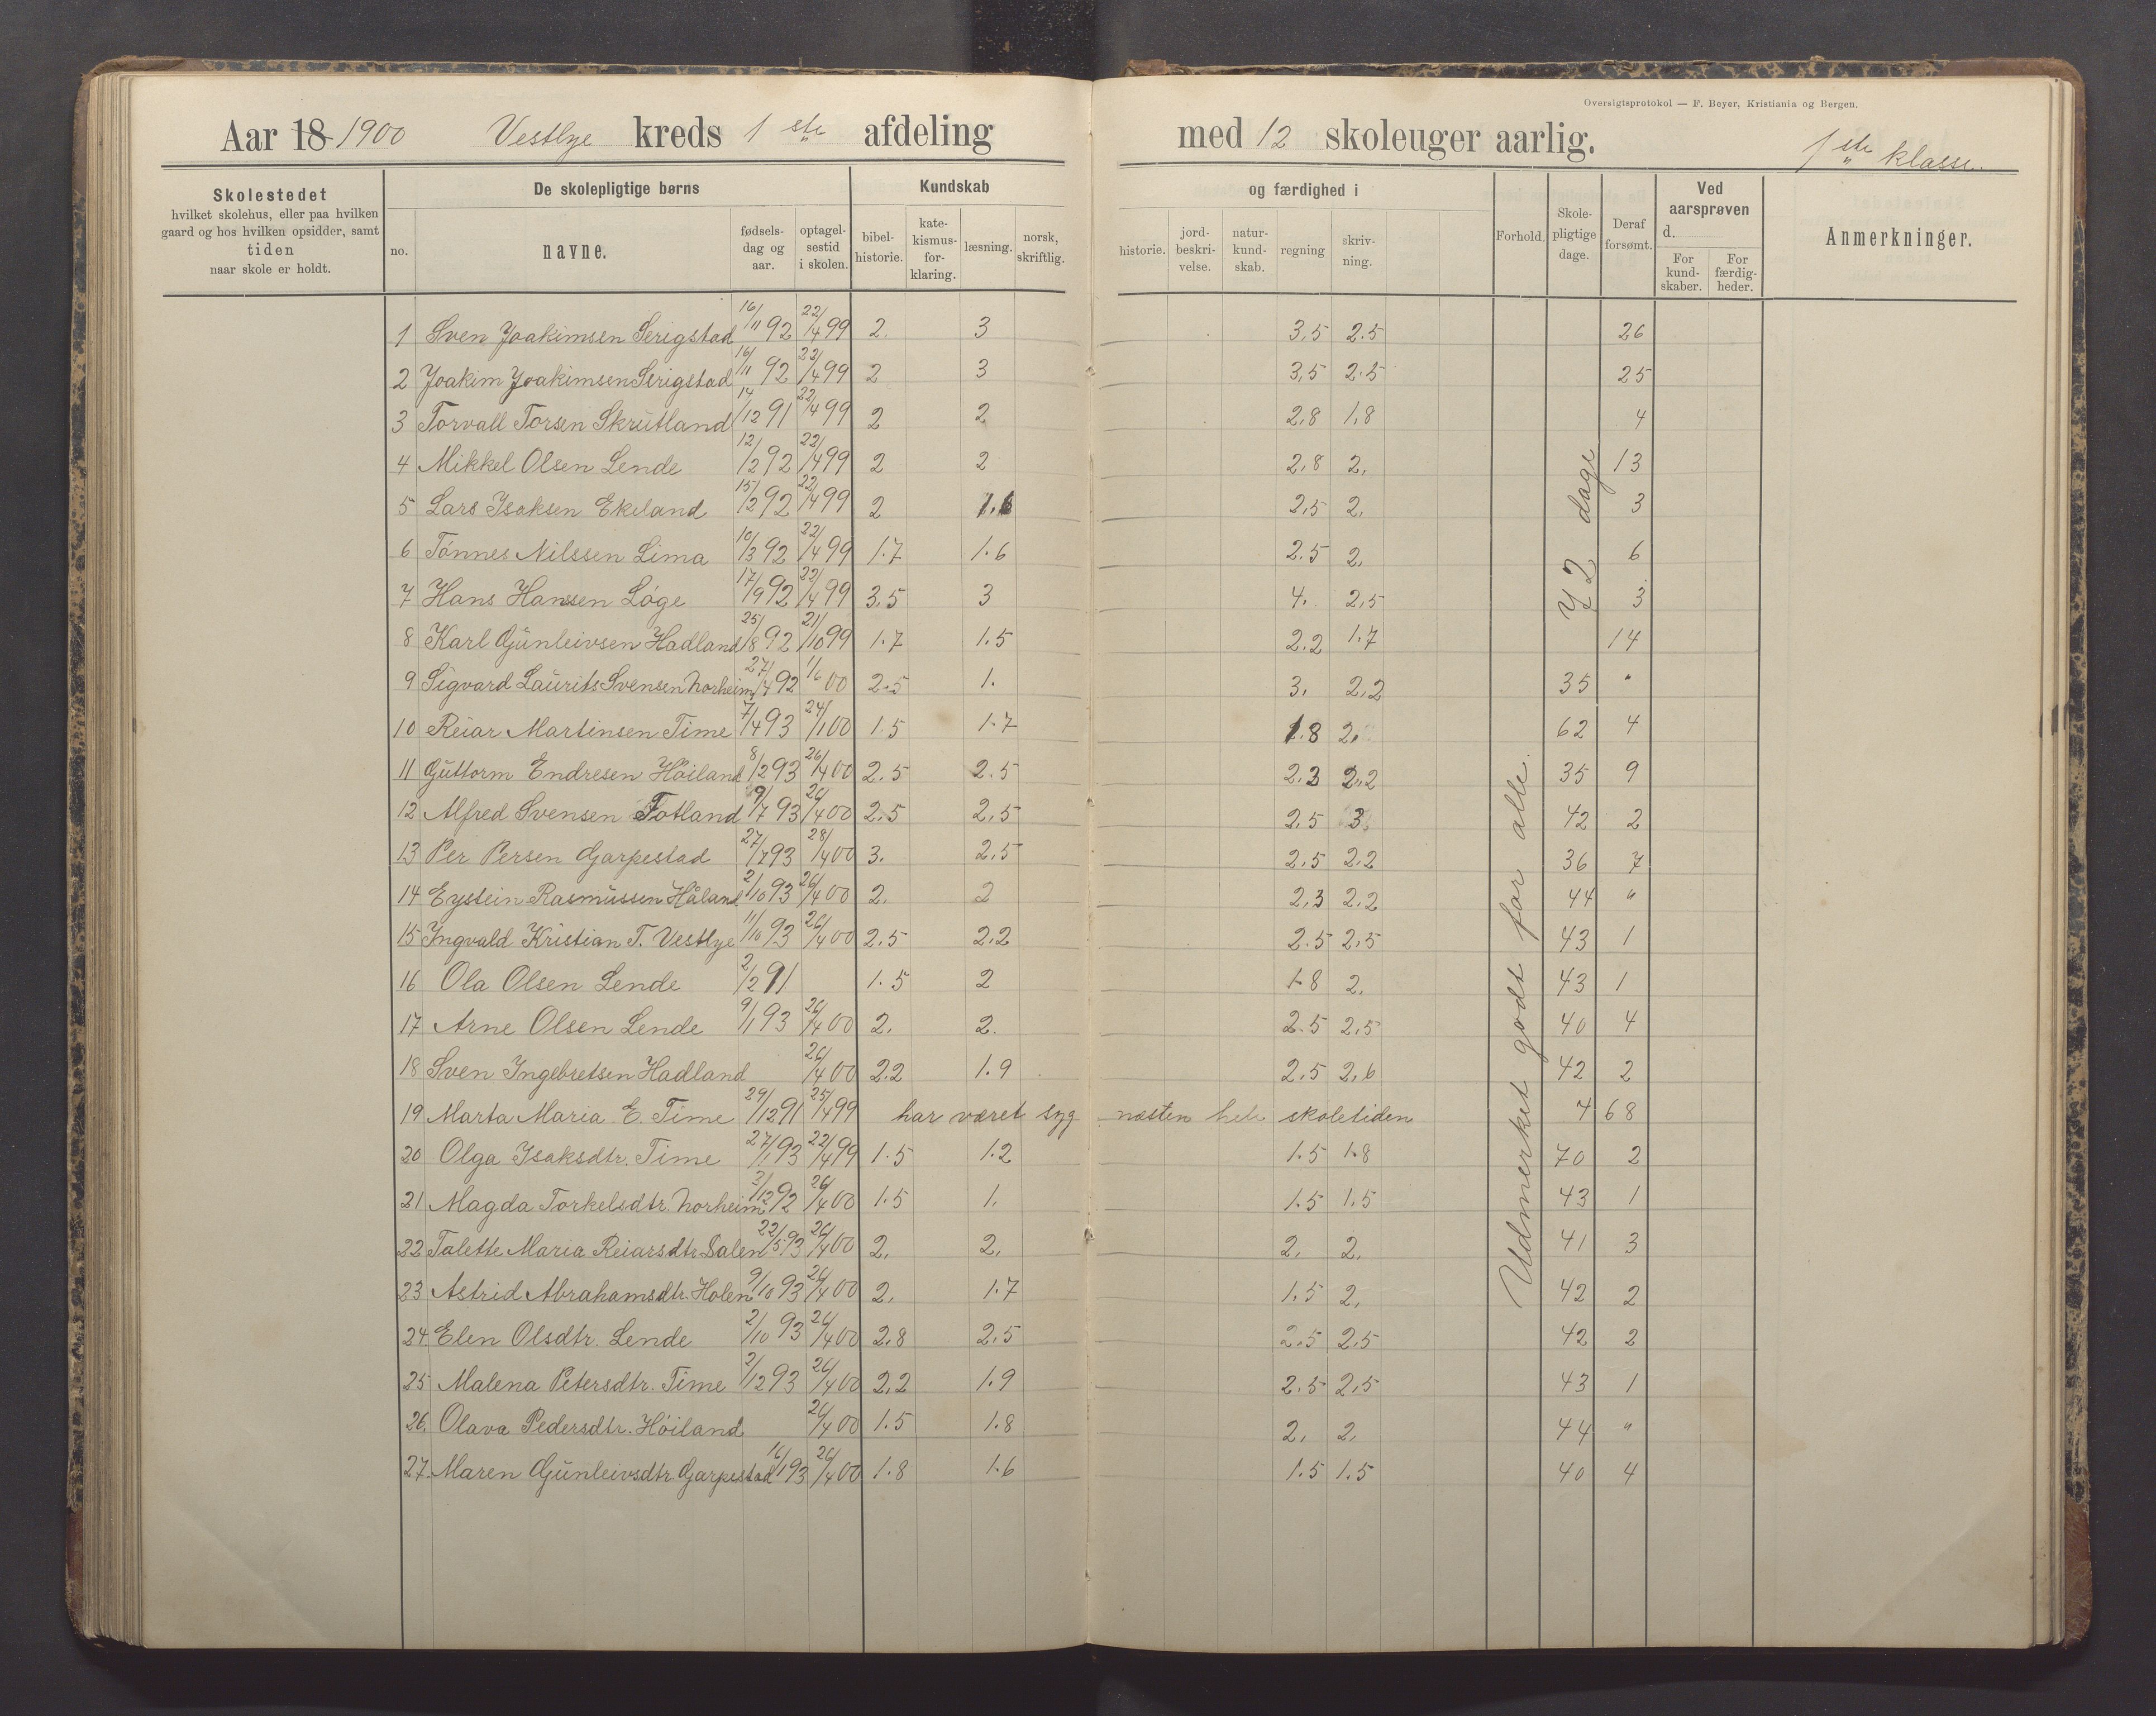 Oversigtsprotokol — F. Beyer, Kristiania og Bergen.
Aar 18 1900 Vestlye kreds 1 ste afdeling med 12 skoleuger aarlig. 1 ste klasse.
Skolestedet hvilket skolehus, eller paa hvilken gaard og hos hvilken opsidder, samt tiden naar skole er holdt.
De skolepligtige børns
no. navne. fødselsdag og aar. optagelsestid i skolen.
Kundskab og færdighed i
bibelhistorie. katekismusforklaring. læsning. norsk, skriftlig. historie. jordbeskrivelse. naturkundskab. regning skrivning.
Forhold. Skolepligtige dage. Deraf forsømt.
Ved aarsprøven d.
For kundskaber. For færdigheder.
Anmerkninger.
1 Sven Joakimsen Serigstad 16/11 92 22/4 99 2. 3 3,5 2.5 26
2 Joakim Joakimsen Serigstad 16/11 92 22/4 99 2 3 3,5 2.5 25
3 Torvall Torsen Skrutland 14/12 91 22/4 99 2 2 2,8 1,8 4
4 Mikkel Olsen Lende 12/2 92 22/4 99 2 2 2,8 2, 13
5 Lars Isaksen Ekeland 15/2 92 22/4 99 2 2,5 2, 3
6 Tønnes Nilssen Lima 10/3 92 22/4 99 1.7 1.6 2.5 2. 6
7 Hans Hanssen Løge 17/9 92 22/4 99 3,5 3 4. 2,5 3
8 Karl Gunleivsen Hadland 25/8 92 21/10 99 1.7 1.5 2.2 1.7 14
9 Sigvard Laurits Svensen Norheim 27/7 92 1/6 00 2.5 1. 3. 2,2 35 "
10 Reiar Martinsen Time 7/4 93 24/1 00 1.5 1.7 1.8 2. 62 4
11 Guttorm Endresen Høiland 8/2 93 26/4 00 2.5 2.5 2.3 2,2 35 9
12 Alfred Svensen Fotland 9/7 93 26/4 00 2,5 2,5 2,5 3. 42 2
13 Per Persen Garpestad 27/7 93 28/4 00 3. 2,5 2,5 2.2 36 7
14 Eystein Rasmussen Håland 2/10 93 26/4 00 2. 2 2,3 2.2 44 "
15 Ingvald Kristian T. Vestlye 11/10 93 26/4 00 2.5 2.2 2.5 2,5 43 1
16 Ola Olsen Lende 2/2 91 1.5 2 1.8 2. 43 1
17 Arne Olsen Lende 9/1 93 26/4 00 2. 2. 2.5 2,5 40 4
18 Sven Ingebretsen Hadland 26/4 00 2.2 1.9 2.5 2,6 42 2
19 Marta Maria E. Time 29/12 91 25/4 99 har været syg næsten hele skoletiden 4 68
20 Olga Isaksdtr. Time 27/1 93 22/4 99 1.5 1.2 1.5 1.8 70 2
21 Magda Torkelsdtr. Norheim 3/12 92 26/4 00 1.5 1. 1.5 1,5 43 1
22 Talette Maria Reiarsdtr. Salen 22/5 93 26/4 00 2. 2. 2. 2. 41 3
23 Astrid Abrahamsdtr. Holen 9/10 93 26/4 00 2. 1.7 1.5 2. 42 2
24. Elen Olsdtr. Lende 2/10 93 26/4 00 2,8 2.5 2.5 2,5 42 2
25 Malena Petersdtr. Time 2/12 93 26/4 00 2,2 1.9 2.5 2,5 43 1
26. Olava Pedersdtr. Høiland 26/4 00 1.5 1.8 2. 2. 44 "
27. Maren Gunleivsdtr. Garpestad 16/1 93 26/4 00 1.8 1.6 1.5 1.5 40 4
72 dage
Udmerket godt for alle.